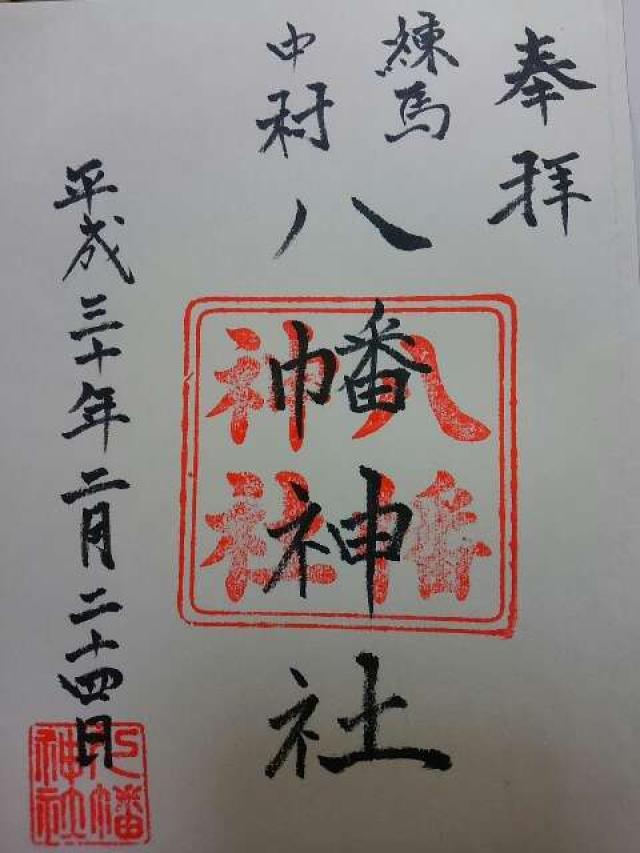 奉拝
練馬
中村
八幡神社
八幡
神社
平成三十年二月二十四日
八幡
神社